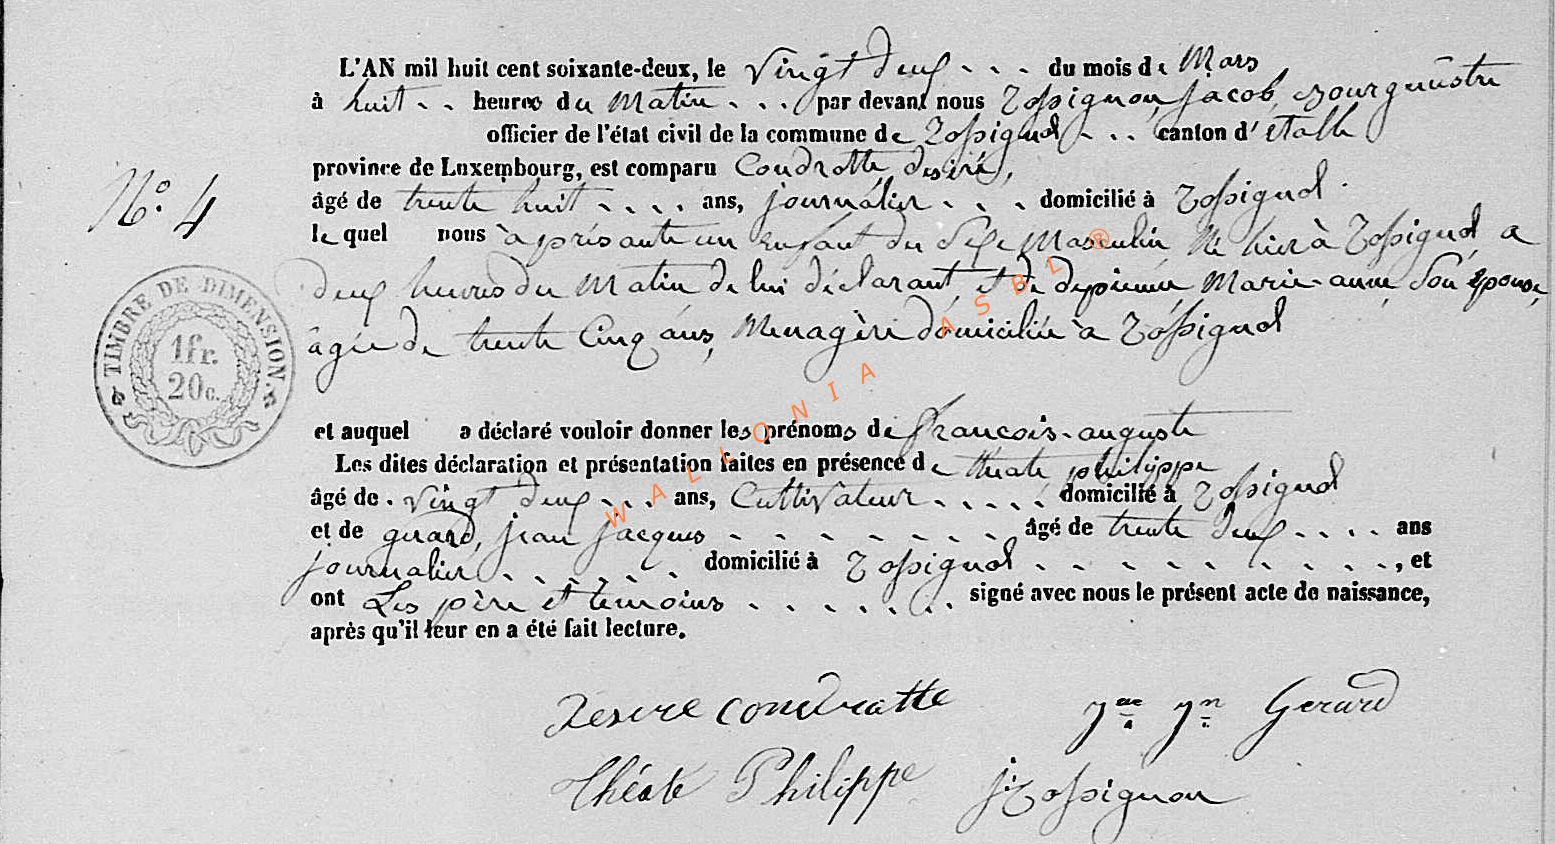 L'AN mil huit cent soixante-deux, le vingt deux - - - du mois de Mars
à huit - - heures du Matin - - - par devant nous Rossignon, Jacob, Bourguestre
officier de l'état civil de la commune de Rossignol - - - canton d'étalle
province de Luxembourg, est comparu Condrotte, desiré,
N°. 4
âgé de trente huit - - - - ans, journalier - - - domicilié à Rossignol.
le quel nous à présenté un enfant du Sexe Masculin, Né hier à Rossignol, a
deux heures du Matin de lui déclarant, et de Marie-anne, Son épouse,
âgée de trente Cinq ans, Menagère domiciliée à Rossignol
TIMBRE DE DIMENSION.
1fr.
20c.
et auquel a déclaré vouloir donner les prénoms de françois-auguste
Les dites déclaration et présentation faites en présence de théate philippe
âgé de - vingt deux - - - ans, Cultivateur - - - - - domicilié à Rossignol
et de gerard, jean jacques - - - - - - - - âgé de trente deux - - - - ans
journalier - - - - - - domicilié à Rossignol - - - - - - - - - -, et
ont Les père et temoins - - - - - - - signé avec nous le présent acte de naissance,
après qu'il leur en a été fait lecture.
Desire condrotte Jque Jn Gerard
Théate Philippe J: Rossignon
WALLONIA ASBL ®